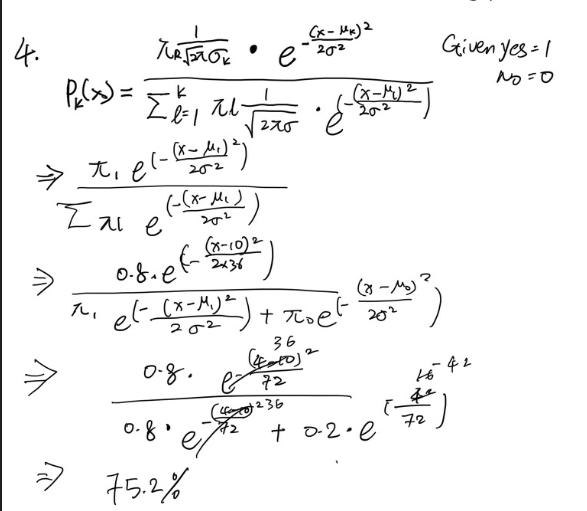 4. P_k(x) = \frac{π_k \frac{1}{\sqrt{2π}σ_k} · e^{-\frac{(x-μ_k)^2}{2σ^2}}}{\sum_{l=1}^{k} πl \frac{1}{\sqrt{2πσ}} · e^{(-\frac{(x-μ_l)^2}{2σ^2})}} Given yes = 1
No = 0
⇒ \frac{π_1 e^{(-\frac{(x-μ_1)^2}{2σ^2})}}{\sum πl e^{(-\frac{(x-μ_l)}{2σ^2})}}
⇒ \frac{0.8 · e^{(-\frac{(x-10)^2}{2×36})}}{π_1 e^{(-\frac{(x-μ_1)^2}{2σ^2})} + π_0 e^{(-\frac{(x-μ_0)^2}{2σ^2})}}
⇒ \frac{0.8 · e^{-\frac{(4-10)^2 36}{72}}}{0.8 · e^{-\frac{(4-10)^2 36}{72}} + 0.2 · e^{(-\frac{16}{72})}}
⇒ 75.2%